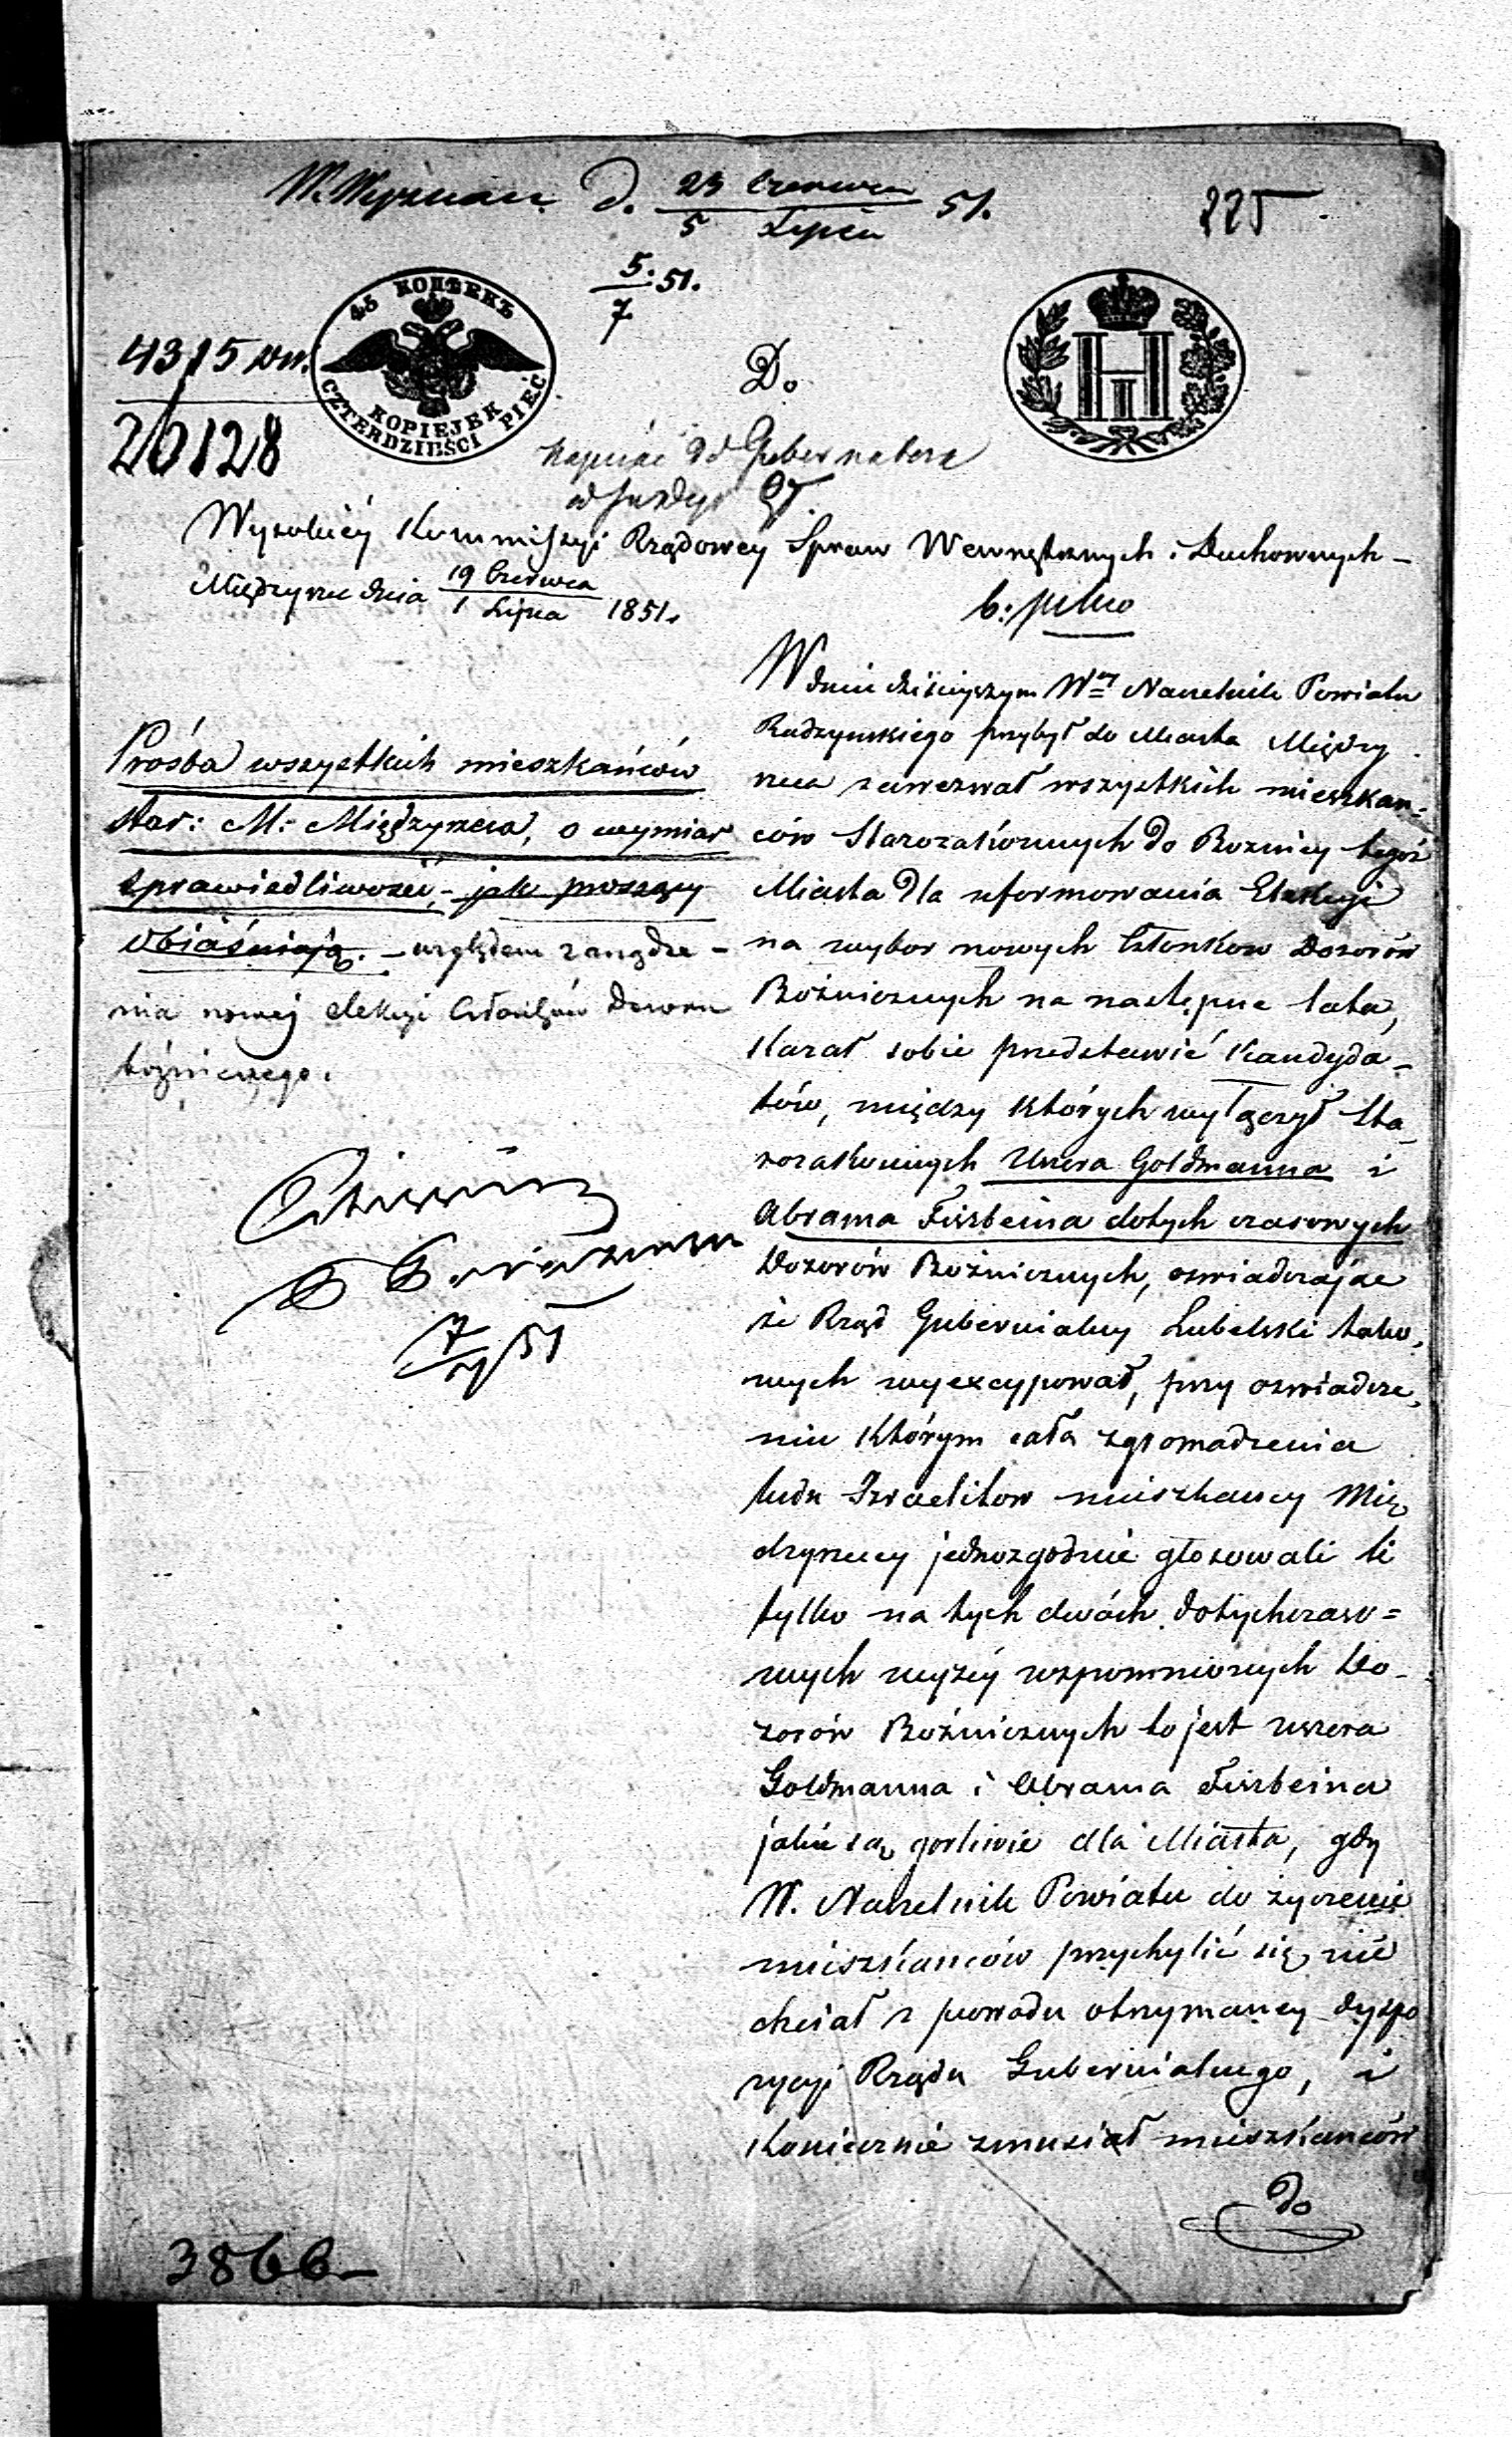 W. Wyznań. D. 23 Czerwca 51.
5 Lipca
225
5. 51.
7
45 КОПѢЕКЪ
KOPIEJEK
CZTERDZIEŚCI PIĘĆ
H
III
4315
20128
Do
Napisać do Gubernatora
Wysokiéy Kommissyi Rządowey Spraw Wewnętrznych i Duchownych -
Międzyrzec dnia 19 Czerwca
1 Lipca 1851.
Prośba wszystkich mieszkańców
star: M: Międzyrzeca, o wymiar
sprawiedliwości, - jak proszący
obiaśniają. - względem zarządze-
nia nowej elekcyi Członków Dozoru
bóżniczego.
7
7 51
W dniu dzisieyszym Wny Naczelnik Powiatu
Radzynskiego przybył do Miasta Między
rzeca zawezwał wszystkich mieszkan-
ców Starozakonnych do Boznicy tegoż
Miasta dla uformowania Elekcyi
na wybor nowych Członkow Dozorów
Bóżnicznych na następne lata,
Kazał sobie przedstawić Kandyda-
tów, między których wyłączył Sta-
rozakonnych Uszera Goldmanna i
Abrama Fiszbeina dotych czasowych
Dozorów Bóżnicznych, oswiadczaiac
że Rząd Gubernialny Lubelski tako-
wych wyexcypował, przy oswiadcze-
niu którym cała zgromadzenia
ludu Izraelitow mieszkancy Mię
dzyrzecy jednozgodnie głosowali li
tylko na tych dwóch dotychczaso=
wych wyżéy wspomnionych Do-
zorów Bóżnicznych to jest Uszera
Goldmanna i Abrama Fiszbeina
jakie są gorliwie dla Miasta, gdy
W. Naczelnik Powiatu do życzenie
mieszkanców przychylić się nie
chciał z powodu otrzymaney dyspo
zycyi Rządu Gubernialnego, i
Koniecznie zmusiał mieszkanców
do
3866-